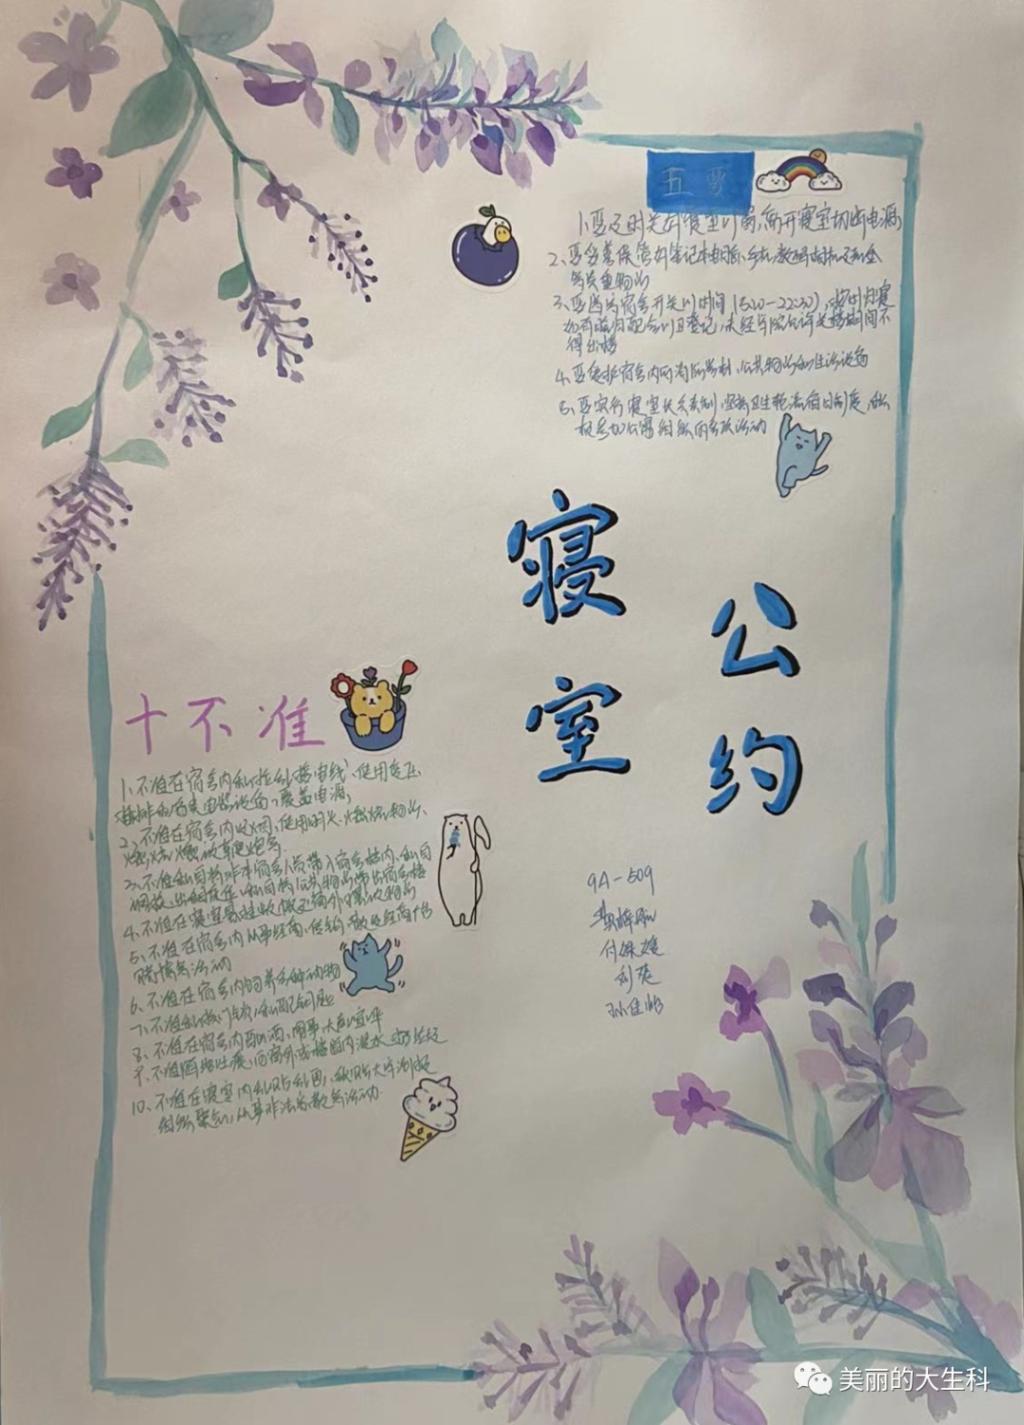 五要
1、要及时关好寝室门窗,离开寝室切断电源
2、要妥善保管好笔记本电脑、手机、数码相机及现金
等贵重物品
3、要遵守宿舍开关门时间(5:20-22:30),按时归寝
如有晚归配合门卫登记,未经允许关楼时间不
得出楼
4、要爱护宿舍内所有公共物品和生活设备
5、要实行寝室长负责制,坚持卫生轮流值日制度,积
极参加公寓组织的各项活动
寝室
公约
十不准
1、不准在宿舍内私拉乱接电线、使用变压
插排和各类电器设备,覆盖电源
2、不准在宿舍内吸烟、使用明火、燃烧物品、
燃放鞭炮等
3、不准私自将非本宿舍人员带入宿舍楼内,私自
将公共物品带出宿舍楼
4、不准在寝室
5、不准在宿舍内从事经商、传销、
赌博等活动
6、不准在宿舍内饲养各种动物
7、不准私换门锁,私配钥匙
8、不准在宿舍内酗酒、闹事、大声喧哗
9、不准随地吐痰,向窗外或楼道内泼水、扔垃圾
10、不准在寝室内乱贴乱画、张贴大字海报
组织聚会,从事非法宗教等活动
9A-509
付
刘英
孙佳怡
美丽的大生科